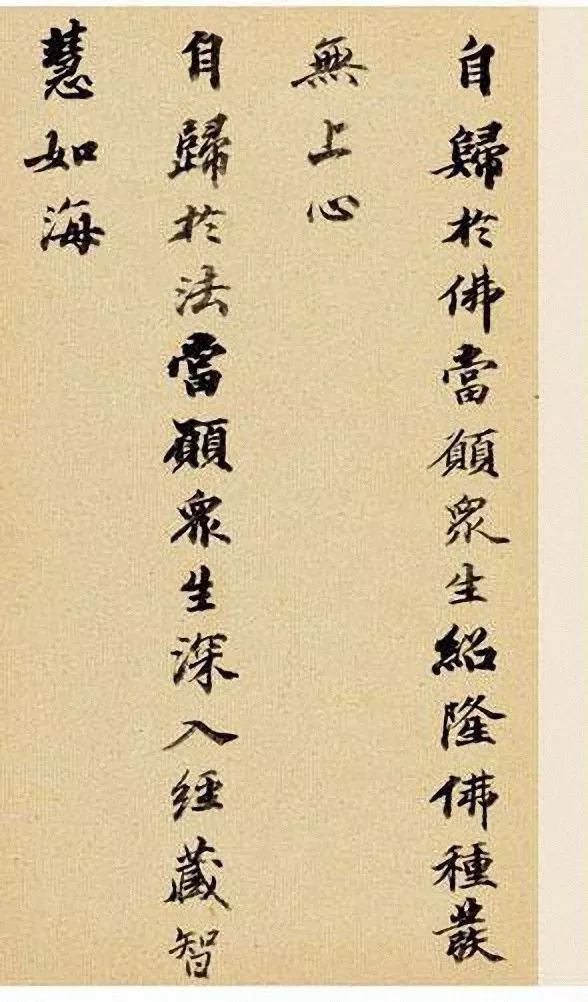 自歸於佛當願眾生紹隆佛種發
無上心
自歸於法當願眾生深入經藏智
慧如海